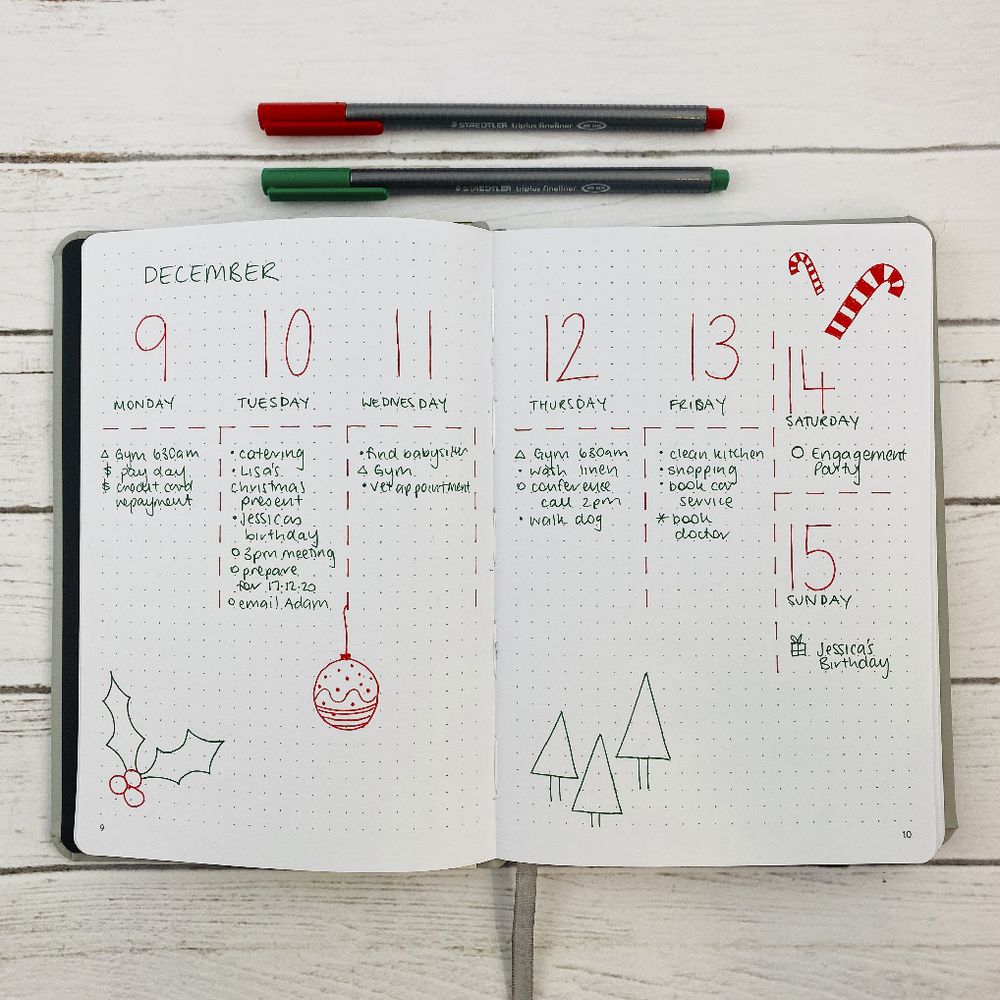 STAEDTLER triplus fineliner
STAEDTLER triplus fineliner
DECEMBER
9
MONDAY
△ Gym 630am
$ pay day
$ credit card
repayment
10
TUESDAY
• catering
• Lisa's
christmas
present
• Jessicas
birthday
○ 3pm meeting
○ prepare
for 17.12.20
○ email Adam
11
WEDNESDAY
• find babysitter
△ Gym
• vet appointment
12
THURSDAY
△ Gym 630am
• wash linen
○ conference
call 2pm
• walk dog
13
FRIDAY
• clean kitchen
• shopping
• book car
service
* book
doctor
14
SATURDAY
○ Engagement
Party
15
SUNDAY
Jessica's
Birthday
9
10